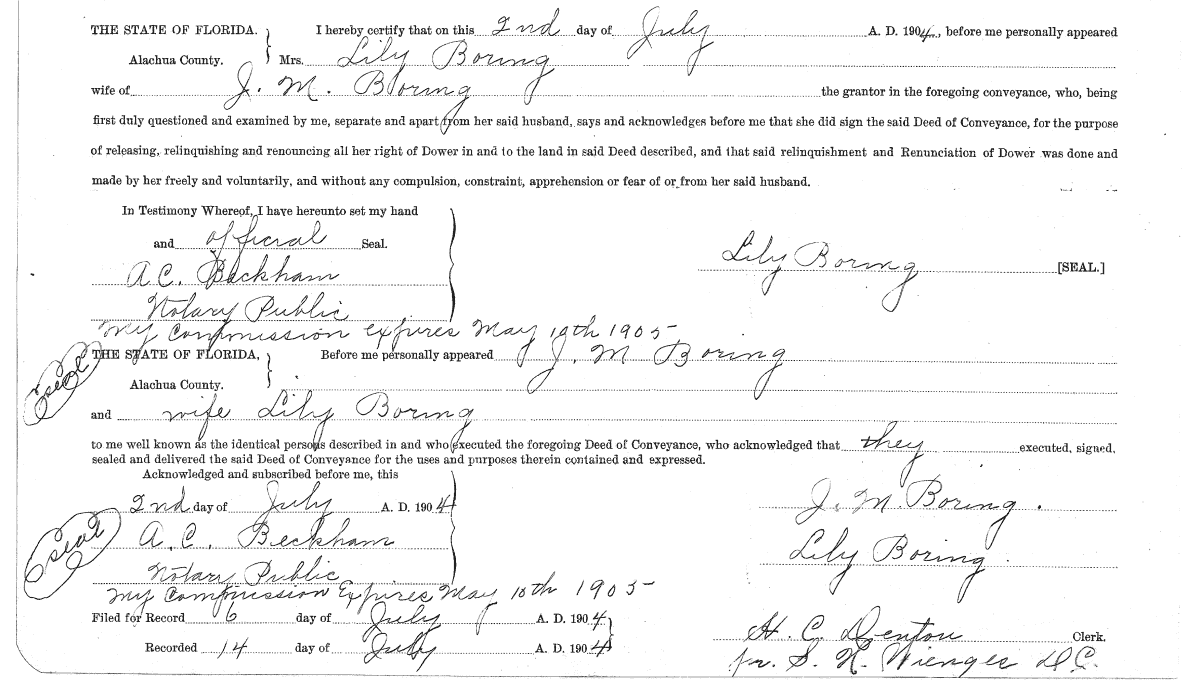 THE STATE OF FLORIDA. } I hereby certify that on this 2nd day of July A. D. 1904, before me personally appeared
Alachua County. } Mrs. Lily Boring
wife of J. M. Boring the grantor in the foregoing conveyance, who, being
first duly questioned and examined by me, separate and apart from her said husband, says and acknowledges before me that she did sign the said Deed of Conveyance, for the purpose
of releasing, relinquishing and renouncing all her right of Dower in and to the land in said Deed described, and that said relinquishment and Renunciation of Dower was done and
made by her freely and voluntarily, and without any compulsion, constraint, apprehension or fear of or from her said husband.
In Testimony Whereof, I have hereunto set my hand
and official Seal.
Lily Boring [SEAL.]
A.C. Beckham
Notary Public
My Commission expires May 10th 1905
seal
THE STATE OF FLORIDA, } Before me personally appeared J. M Boring
Alachua County.
and wife Lily Boring
to me well known as the identical persons described in and who executed the foregoing Deed of Conveyance, who acknowledged that they executed, signed,
sealed and delivered the said Deed of Conveyance for the uses and purposes therein contained and expressed.
Acknowledged and subscribed before me, this
2nd day of July A. D. 1904
J. M. Boring.
seal
A. C. Beckham
Lily Boring.
Notary Public
My Commission Expires May 10th 1905
Filed for Record 6 day of July A. D. 1904
H. C. Denton Clerk.
Recorded 14 day of July A. D. 1904
pr. S. H. Wienges D.C.